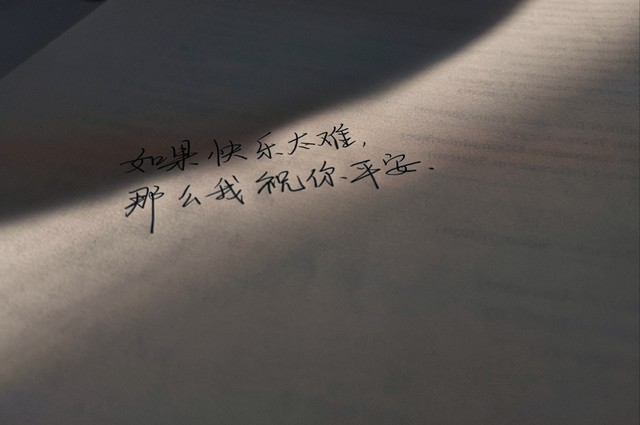 如果快乐太难,
那么我祝你平安.